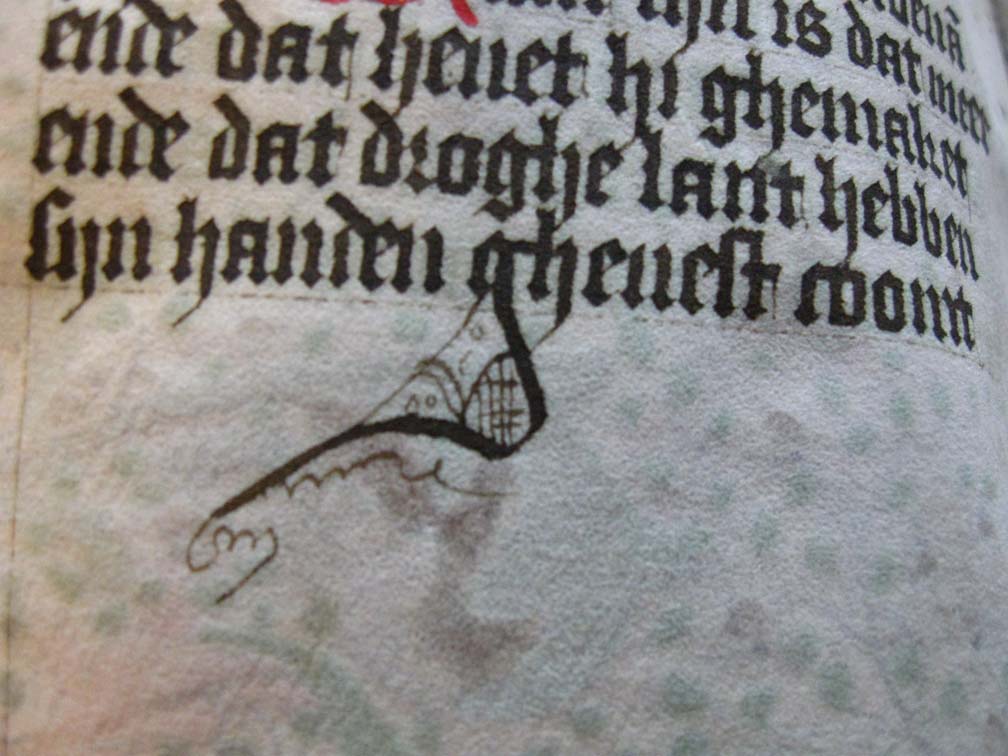 is dat meer
ende dat heuet hi ghemaket
ende dat droghe lant hebben
sijn handen gheuest comt